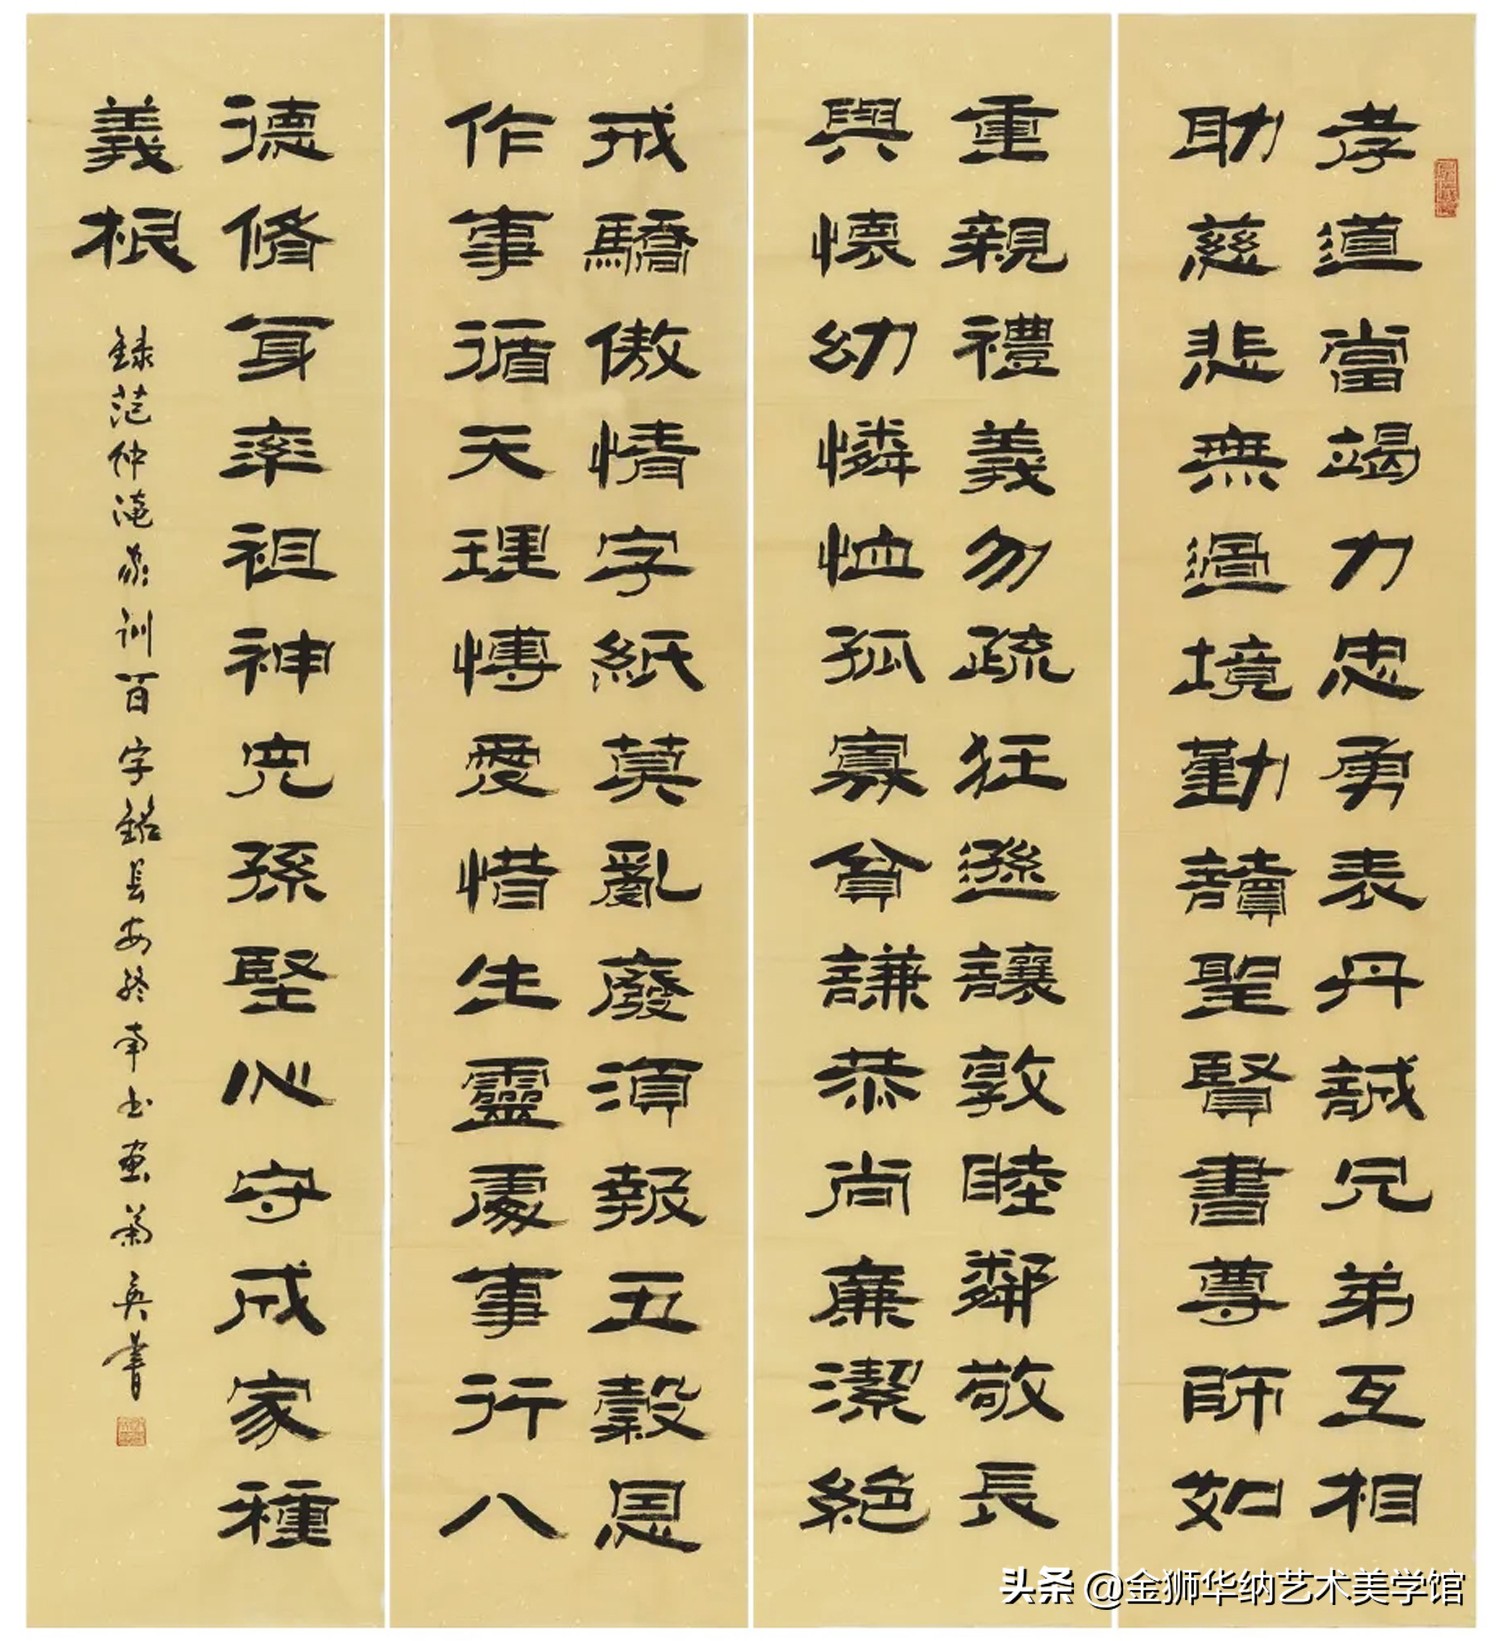 孝道當竭力忠勇表丹誠兄弟互相
助慈悲無過境勤讀聖賢書尊師如
重親禮義勿疏狂遜讓敦睦鄰敬長
與懷幼憐恤孤寡貧謙恭尚廉潔絕
戒驕傲情字紙莫亂廢須報五穀恩
作事循天理愽愛惜生靈處事行八
德脩身率祖神兒孫堅心守成家種
義根
録范仲淹家训百字銘長安終南书画菊英書
头条 @金狮华纳艺术美学馆